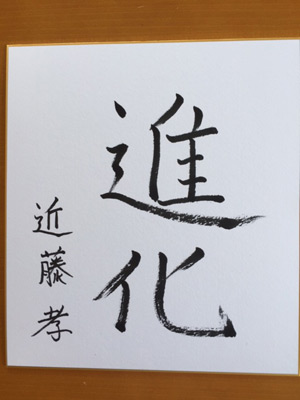 進化
近藤孝